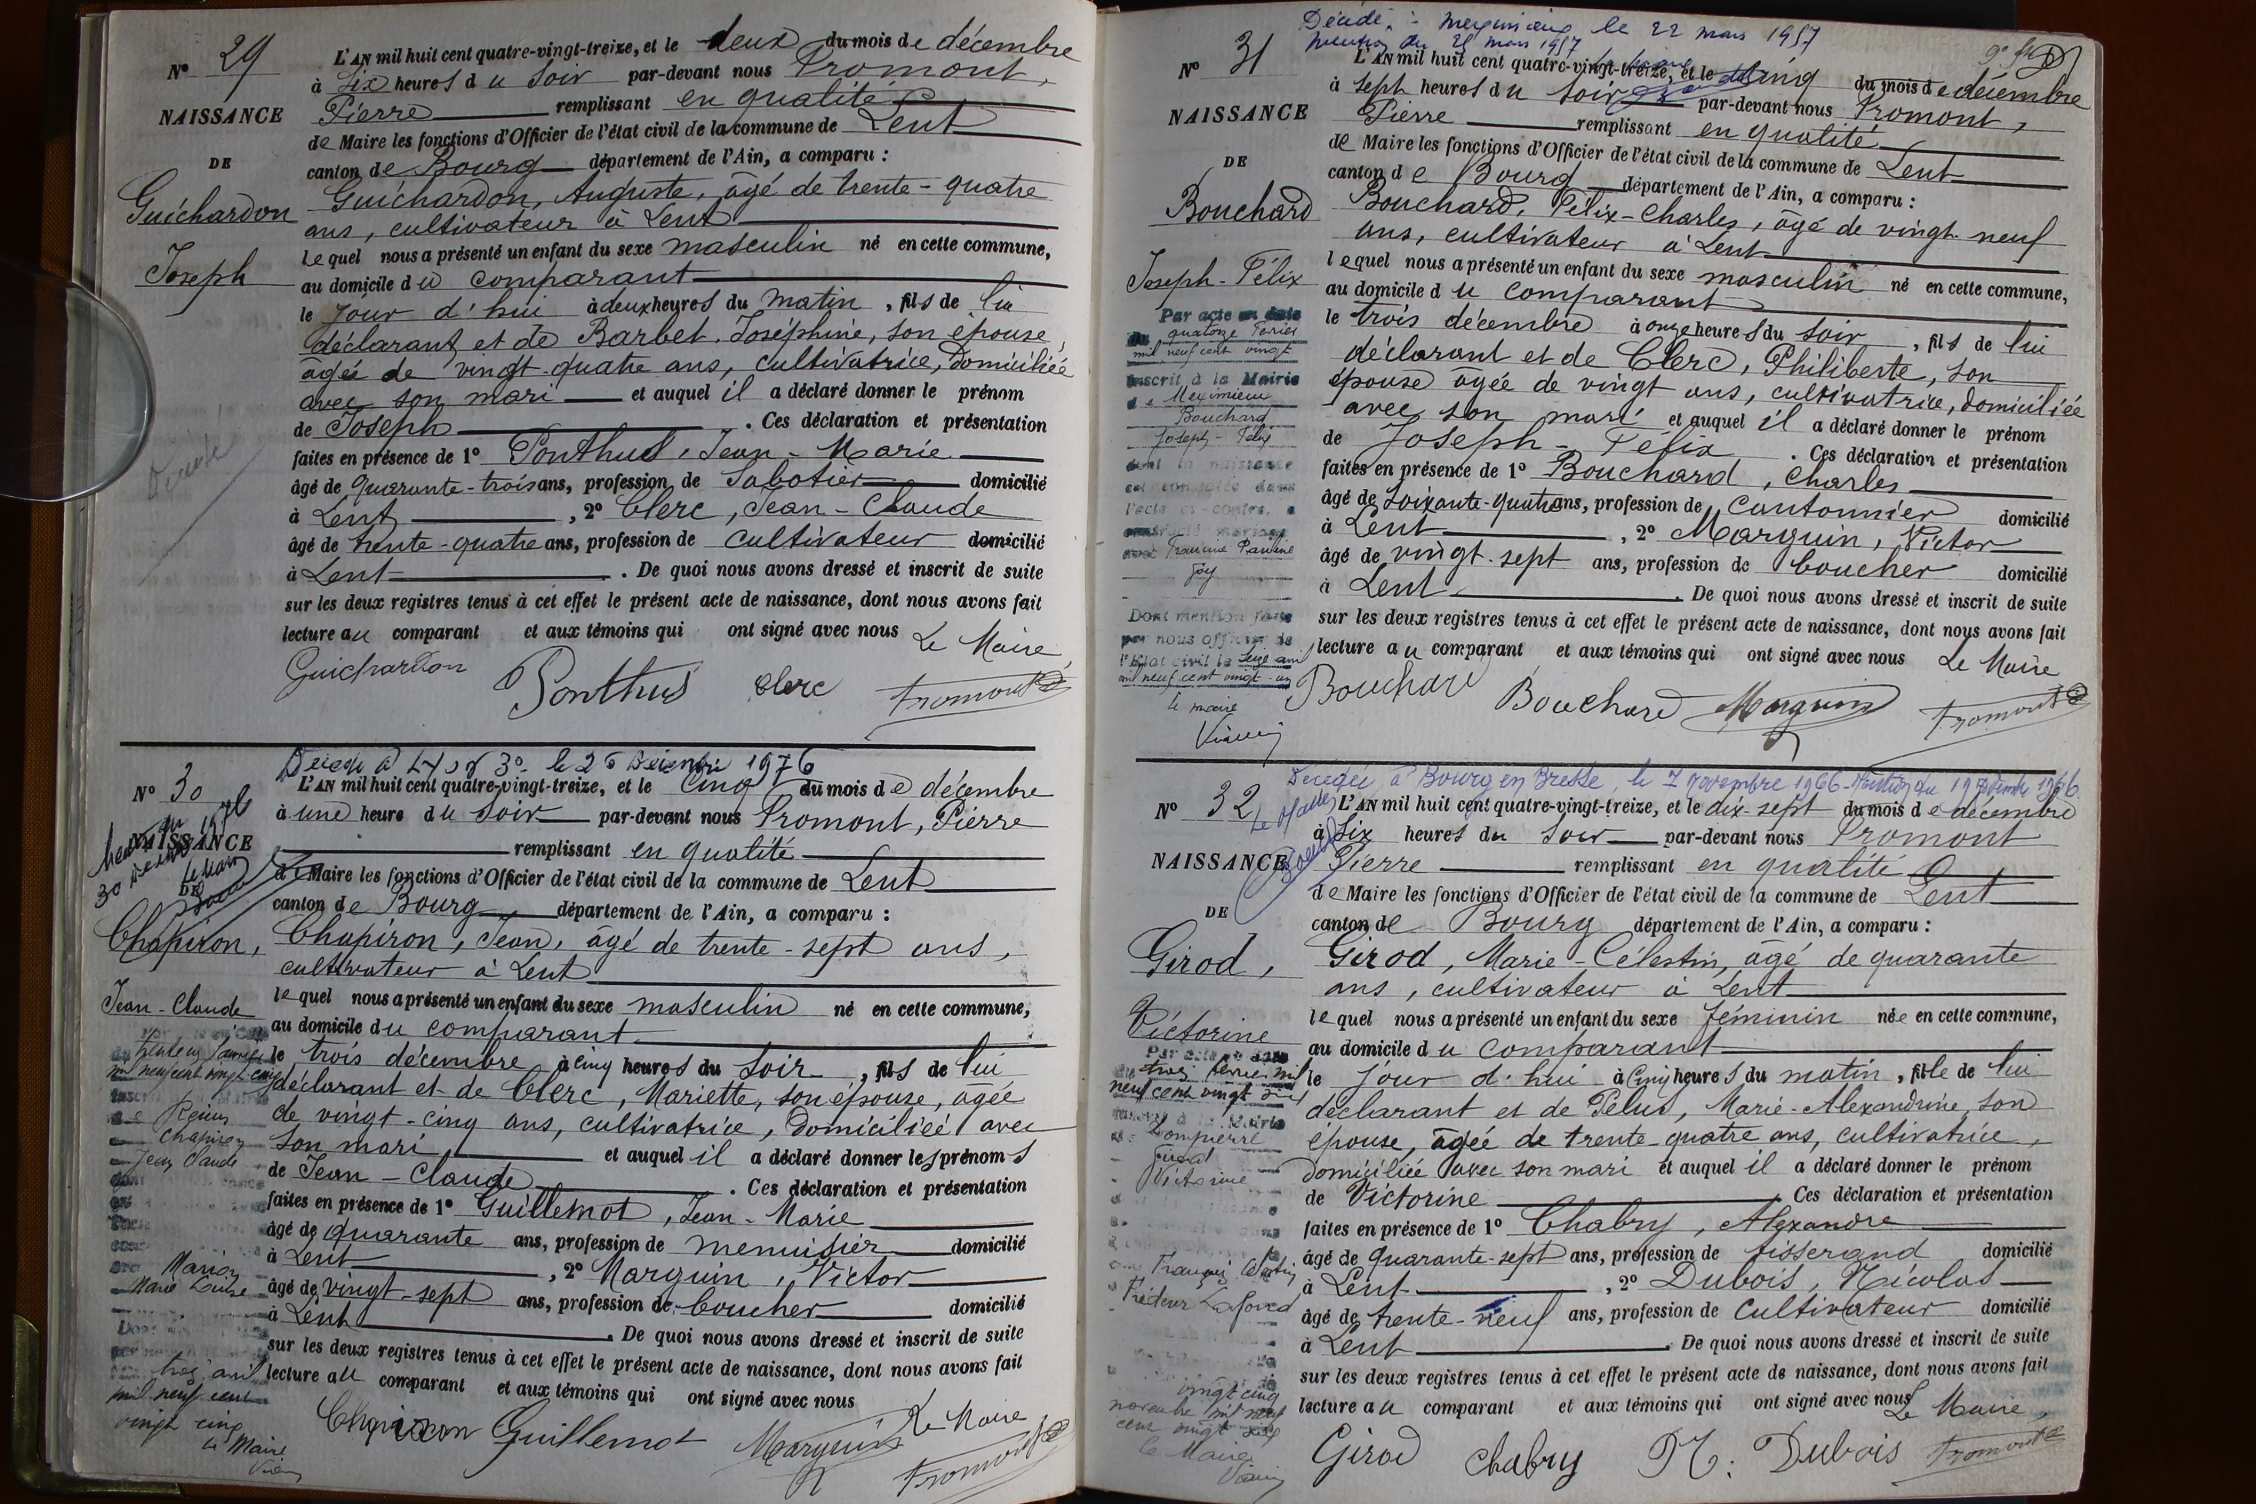 N° 29
NAISSANCE
DE
Guichardon
Joseph
L'AN mil huit cent quatre-vingt-treize, et le deux du mois de décembre
à six heures du soir par-devant nous Fromont,
Pierre remplissant en qualité
de Maire les fonctions d'Officier de l'état civil de la commune de Lent
canton de Bourg département de l'Ain, a comparu :
Guichardon, Auguste, âgé de trente-quatre
ans, cultivateur à Lent
lequel nous a présenté un enfant du sexe masculin né en cette commune,
au domicile du comparant
le jour d'hui à deux heures du matin, fils de lui
déclarant et de Barbet, Joséphine, son épouse,
âgée de vingt-quatre ans, cultivatrice, domiciliée
avec son mari et auquel il a déclaré donner le prénom
de Joseph . Ces déclaration et présentation
faites en présence de 1° Ponthus, Jean-Marie
âgé de quarante-trois ans, profession de Sabotier domicilié
à Lent , 2° Clerc, Jean-Claude
âgé de trente-quatre ans, profession de cultivateur domicilié
à Lent . De quoi nous avons dressé et inscrit de suite
sur les deux registres tenus à cet effet le présent acte de naissance, dont nous avons fait
lecture au comparant et aux témoins qui ont signé avec nous Le Maire
Guichardon Ponthus Clerc Fromont
Décédé à le 26 Décembre 1976
N° 30
NAISSANCE
DE
Chapiron,
Jean-Claude
L'AN mil huit cent quatre-vingt-treize, et le cinq du mois de décembre
à une heure du soir par-devant nous Fromont, Pierre
remplissant en qualité
de Maire les fonctions d'Officier de l'état civil de la commune de Lent
canton de Bourg département de l'Ain, a comparu :
Chapiron, Jean, âgé de trente-sept ans,
cultivateur à Lent
lequel nous a présenté un enfant du sexe masculin né en cette commune,
au domicile du comparant
le trois décembre à cinq heures du soir, fils de lui
déclarant et de Clerc, Mariette, son épouse, âgée
de vingt-cinq ans, cultivatrice, domiciliée avec
son mari et auquel il a déclaré donner les prénoms
de Jean-Claude . Ces déclaration et présentation
faites en présence de 1° Guillemot, Jean-Marie
âgé de quarante ans, profession de menuisier domicilié
à Lent , 2° Marguin, Victor
âgé de vingt-sept ans, profession de boucher domicilié
à Lent . De quoi nous avons dressé et inscrit de suite
sur les deux registres tenus à cet effet le présent acte de naissance, dont nous avons fait
lecture au comparant et aux témoins qui ont signé avec nous
Le Maire
Chapiron Guillemot Marguin Fromont
mil neuf cent vingt cinq
Chapiron
Jean Claude
Marie Louise
mil neuf cent
vingt cinq
le Maire
Décédé à Meximieux le 22 mars 1957
mention du 25 mars 1957
N° 31
NAISSANCE
DE
Bouchard
Joseph-Félix
Par acte en date
du quatorze Février
mil neuf cent vingt
inscrit à la Mairie
de Meximieux
Bouchard
Joseph-Félix
dont la naissance
est constatée dans
l'acte ci-contre, a
contracté mariage
avec Francine Pauline
Joy
Dont mention faite
par nous officier de
l'Etat civil le
mil neuf cent vingt-un
le maire
L'AN mil huit cent quatre-vingt-treize, et le cinq du mois de décembre
à sept heures du soir par-devant nous Fromont,
Pierre remplissant en qualité
de Maire les fonctions d'Officier de l'état civil de la commune de Lent
canton de Bourg département de l'Ain, a comparu :
Bouchard, Félix-Charles, âgé de vingt-neuf
ans, cultivateur à Lent
lequel nous a présenté un enfant du sexe masculin né en cette commune,
au domicile du comparant
le trois décembre à onze heures du soir, fils de lui
déclarant et de Clerc, Philiberte, son
épouse âgée de vingt ans, cultivatrice, domiciliée
avec son mari et auquel il a déclaré donner le prénom
de Joseph-Félix . Ces déclaration et présentation
faites en présence de 1° Bouchard, Charles
âgé de soixante-quatre ans, profession de cantonnier domicilié
à Lent , 2° Marguin, Victor
âgé de vingt-sept ans, profession de boucher domicilié
à Lent . De quoi nous avons dressé et inscrit de suite
sur les deux registres tenus à cet effet le présent acte de naissance, dont nous avons fait
lecture au comparant et aux témoins qui ont signé avec nous Le Maire
Bouchard Bouchard Marguin Fromont
Décédée à Bourg en Bresse, le 7 novembre 1966
N° 32
NAISSANCE
DE
Girod,
Victorine
L'AN mil huit cent quatre-vingt-treize, et le dix-sept du mois de décembre
à six heures du soir par-devant nous Fromont
Pierre remplissant en qualité
de Maire les fonctions d'Officier de l'état civil de la commune de Lent
canton de Bourg département de l'Ain, a comparu :
Girod, Marie-Célestin, âgé de quarante
ans, cultivateur à Lent
lequel nous a présenté un enfant du sexe féminin née en cette commune,
au domicile du comparant
le jour d'hui à cinq heures du matin, fille de lui
déclarant et de Pelus, Marie-Alexandrine, son
épouse, âgée de trente-quatre ans, cultivatrice,
domiciliée avec son mari et auquel il a déclaré donner le prénom
de Victorine . Ces déclaration et présentation
faites en présence de 1° Chabry, Alexandre
âgé de quarante-sept ans, profession de tisserand domicilié
à Lent , 2° Dubois, Nicolas
âgé de trente-neuf ans, profession de cultivateur domicilié
à Lent . De quoi nous avons dressé et inscrit de suite
sur les deux registres tenus à cet effet le présent acte de naissance, dont nous avons fait
lecture au comparant et aux témoins qui ont signé avec nous Le Maire,
Girod Chabry N. Dubois Fromont
Par acte en date
neuf cent vingt
Dompierre
Girod
Victorine
vingt cinq
novembre mil neuf
cent vingt
le Maire